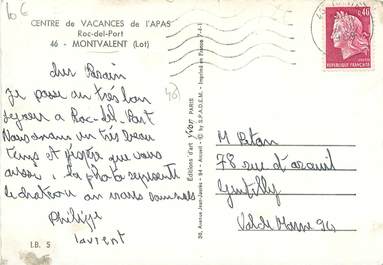 10 €
CENTRE de VACANCES de l'APAS
Roc-del-Port
46 - MONTVALENT (Lot)
cher Parain
Je passe un très bon
sejour a Roc-del-Port
Nous avons un très beau
temps et j'espère que vous
aussi. La photo represente
le chateau ou nous sommes
Philippe
laurent
I.B. 5
46
Editions d'art YVON PARIS
36, Avenue Jean-Jaurès - 94 - Arcueil - © by S.P.A.D.E.M. - Imprimé en France
0,40
REPUBLIQUE FRANÇAISE
M Petan
78 rue d'arcueil
Gentilly
Val de Marne 94